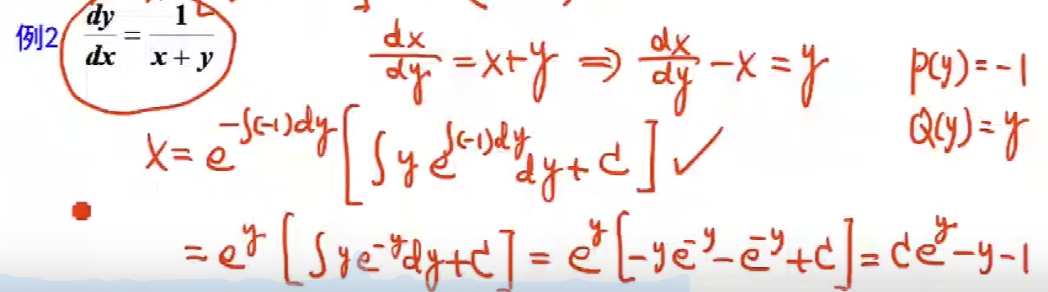 例2 dy/dx = 1/(x + y)   dx/dy = x+y ⇒ dx/dy - x = y   P(y) = -1
Q(y) = y
x = e^{-∫(-1)dy} [∫ y e^{∫(-1)dy} dy + C] ✓
= e^y [∫ y e^{-y} dy + C] = e^y [-y e^{-y} - e^{-y} + C] = C e^y - y - 1